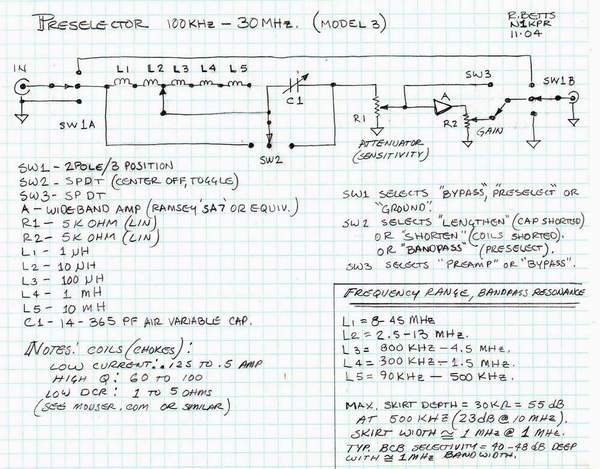 PRESELECTOR 100KHZ - 30MHZ. (MODEL 3)
R.BETTS
N1KPR
11-04
IN
L1 L2 L3 L4 L5
C1
SW3
SW1B
A
R1
R2
GAIN
SW1A
SW2
ATTENUATOR
(SENSITIVITY)
SW1 - 2POLE/3 POSITION
SW2 - SPDT (CENTER OFF, TOGGLE)
SW3 - SPDT
A - WIDEBAND AMP (RAMSEY 'SA7' OR EQUIV.)
R1 - 5K OHM (LIN)
R2 - 5K OHM (LIN)
L1 - 1 µH
L2 - 10 µH
L3 - 100 µH
L4 - 1 mH
L5 - 10 mH
C1 - 14 - 365 PF AIR VARIABLE CAP.
NOTES: COILS (CHOKES):
LOW CURRENT: .125 TO .5 AMP
HIGH Q: 60 TO 100
LOW DCR: 1 TO 5 OHMS
(SEE MOUSER.COM OR SIMILAR)
SW1 SELECTS "BYPASS", "PRESELECT" OR
"GROUND".
SW2 SELECTS "LENGTHEN" (CAP SHORTED)
OR "SHORTEN" (COILS SHORTED).
OR "BANDPASS" (PRESELECT).
SW3 SELECTS "PREAMP" OR "BYPASS".
FREQUENCY RANGE, BANDPASS RESONANCE
L1 = 8-45 MHZ
L2 = 2.5-13 MHZ.
L3 = 800 KHZ - 4.5 MHZ.
L4 = 300 KHZ - 1.5 MHZ.
L5 = 90KHZ - 500 KHZ.
MAX. SKIRT DEPTH = 30KΩ = 55 dB
AT 500 KHZ (23dB @ 10 MHZ).
SKIRT WIDTH ≅ 1 MHZ @ 1 MHZ.
TYP. BCB SELECTIVITY = 40-48 dB DEEP
WITH ≅ 1MHZ BANDWIDTH.